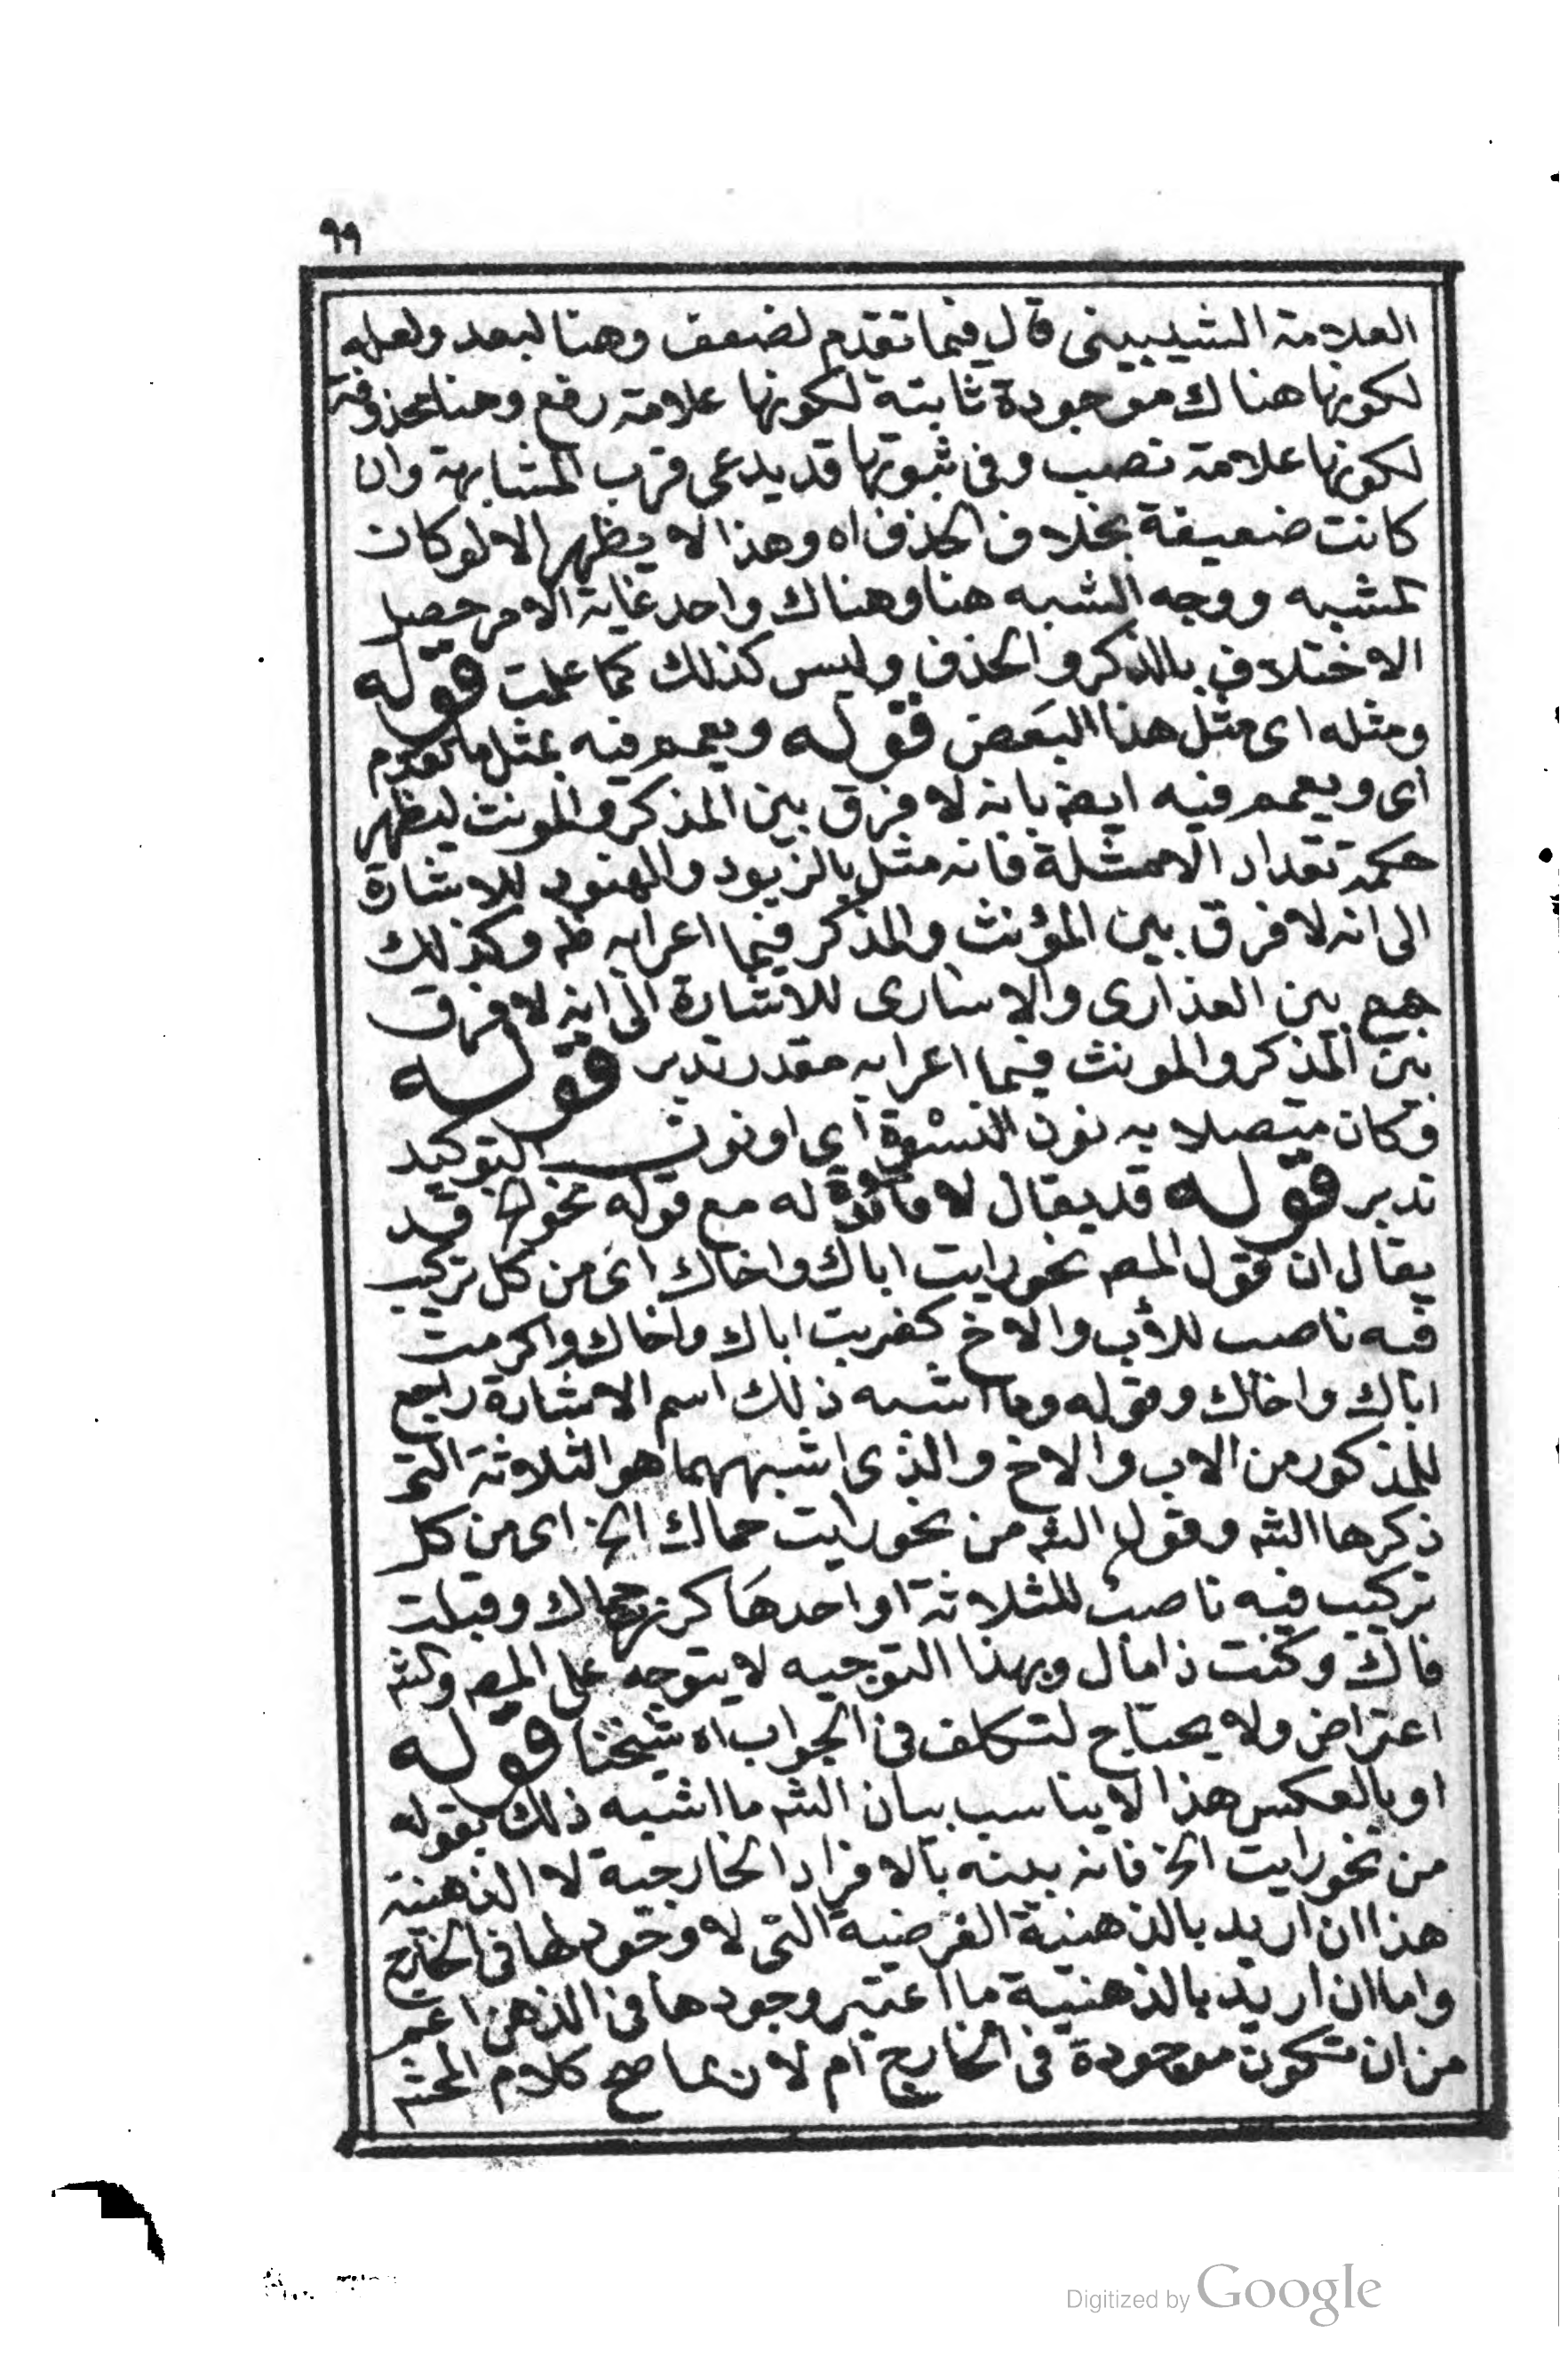 ٩٩
العلامة الشيبينى قال فيما تقدم لضعف وهنا لبعد ولعله
لكونها هناك موجودة ثابتة لكونها علامة رفع وهنا محذوفة
لكونها علامة نصب وفى ثبوتها قد يدعى قرب المشابهة وان
كانت ضعيفة بخلاف الحذف اه وهذا لا يظهر الا لو كان
المشبه ووجه الشبه هنا وهناك واحد غاية الامر حصل
الاختلاف بالذكر والحذف وليس كذلك كما علمت قوله
ومثله اى مثل هذا البعض قوله ويعمم فيه بمثل ما تقدم
اى ويعمم فيه ايضا بانه لا فرق بين المذكر والمونث ليظهر
حكمة تعداد الامثلة فانه مثل بالزيود والهنود للاشارة
الى انه لا فرق بين المؤنث والمذكر فيما اعرابه ظه وكذلك
جمع بين العذارى والاسارى للاشارة الى انه لا فرق
بين المذكر والمونث فيما اعرابه مقدر تدبر قوله
وكان متصلا به نون النسوة اى او نون التوكيد
تدبر قوله قد يقال لا فائدة له مع قوله نحو الخ قد
يقال ان قول المصـ نحو رايت اباك واخاك اى من كل تركيب
فيه ناصب للأب والاخ كضربت اباك واخاك واكرمت
اباك واخاك وقوله وما اشبه ذلك اسم الاشارة راجع
للمذكور من الاب والاخ والذى اشبههما هو الثلاثة التى
ذكرها الشـ وقول الشـ من نحو رايت حماك الخ اى من كل
تركيب فيه ناصب للثلاثة او احدها كزرت حماك وقبلت
فاك وكنت ذا مال وبهذا التوجيه لا يتوجه على المصـ والشـ
اعتراض ولا يحتاج لتكلف فى الجواب اه شيخنا قوله
او بالعكس هذا لا يناسب بيان الشـ ما اشبه ذلك بقوله
من نحو رايت الخ فانه بينه بالافراد الخارجية لا الذهنية
هذا ان اريد بالذهنية الفرضية التى لا وجود لها فى الخارج
واما ان اريد بالذهنية ما اعتبر وجودها فى الذهن اعم
من ان تكون موجودة فى الخارج ام لا صح كلام المحشـ
Digitized by Google